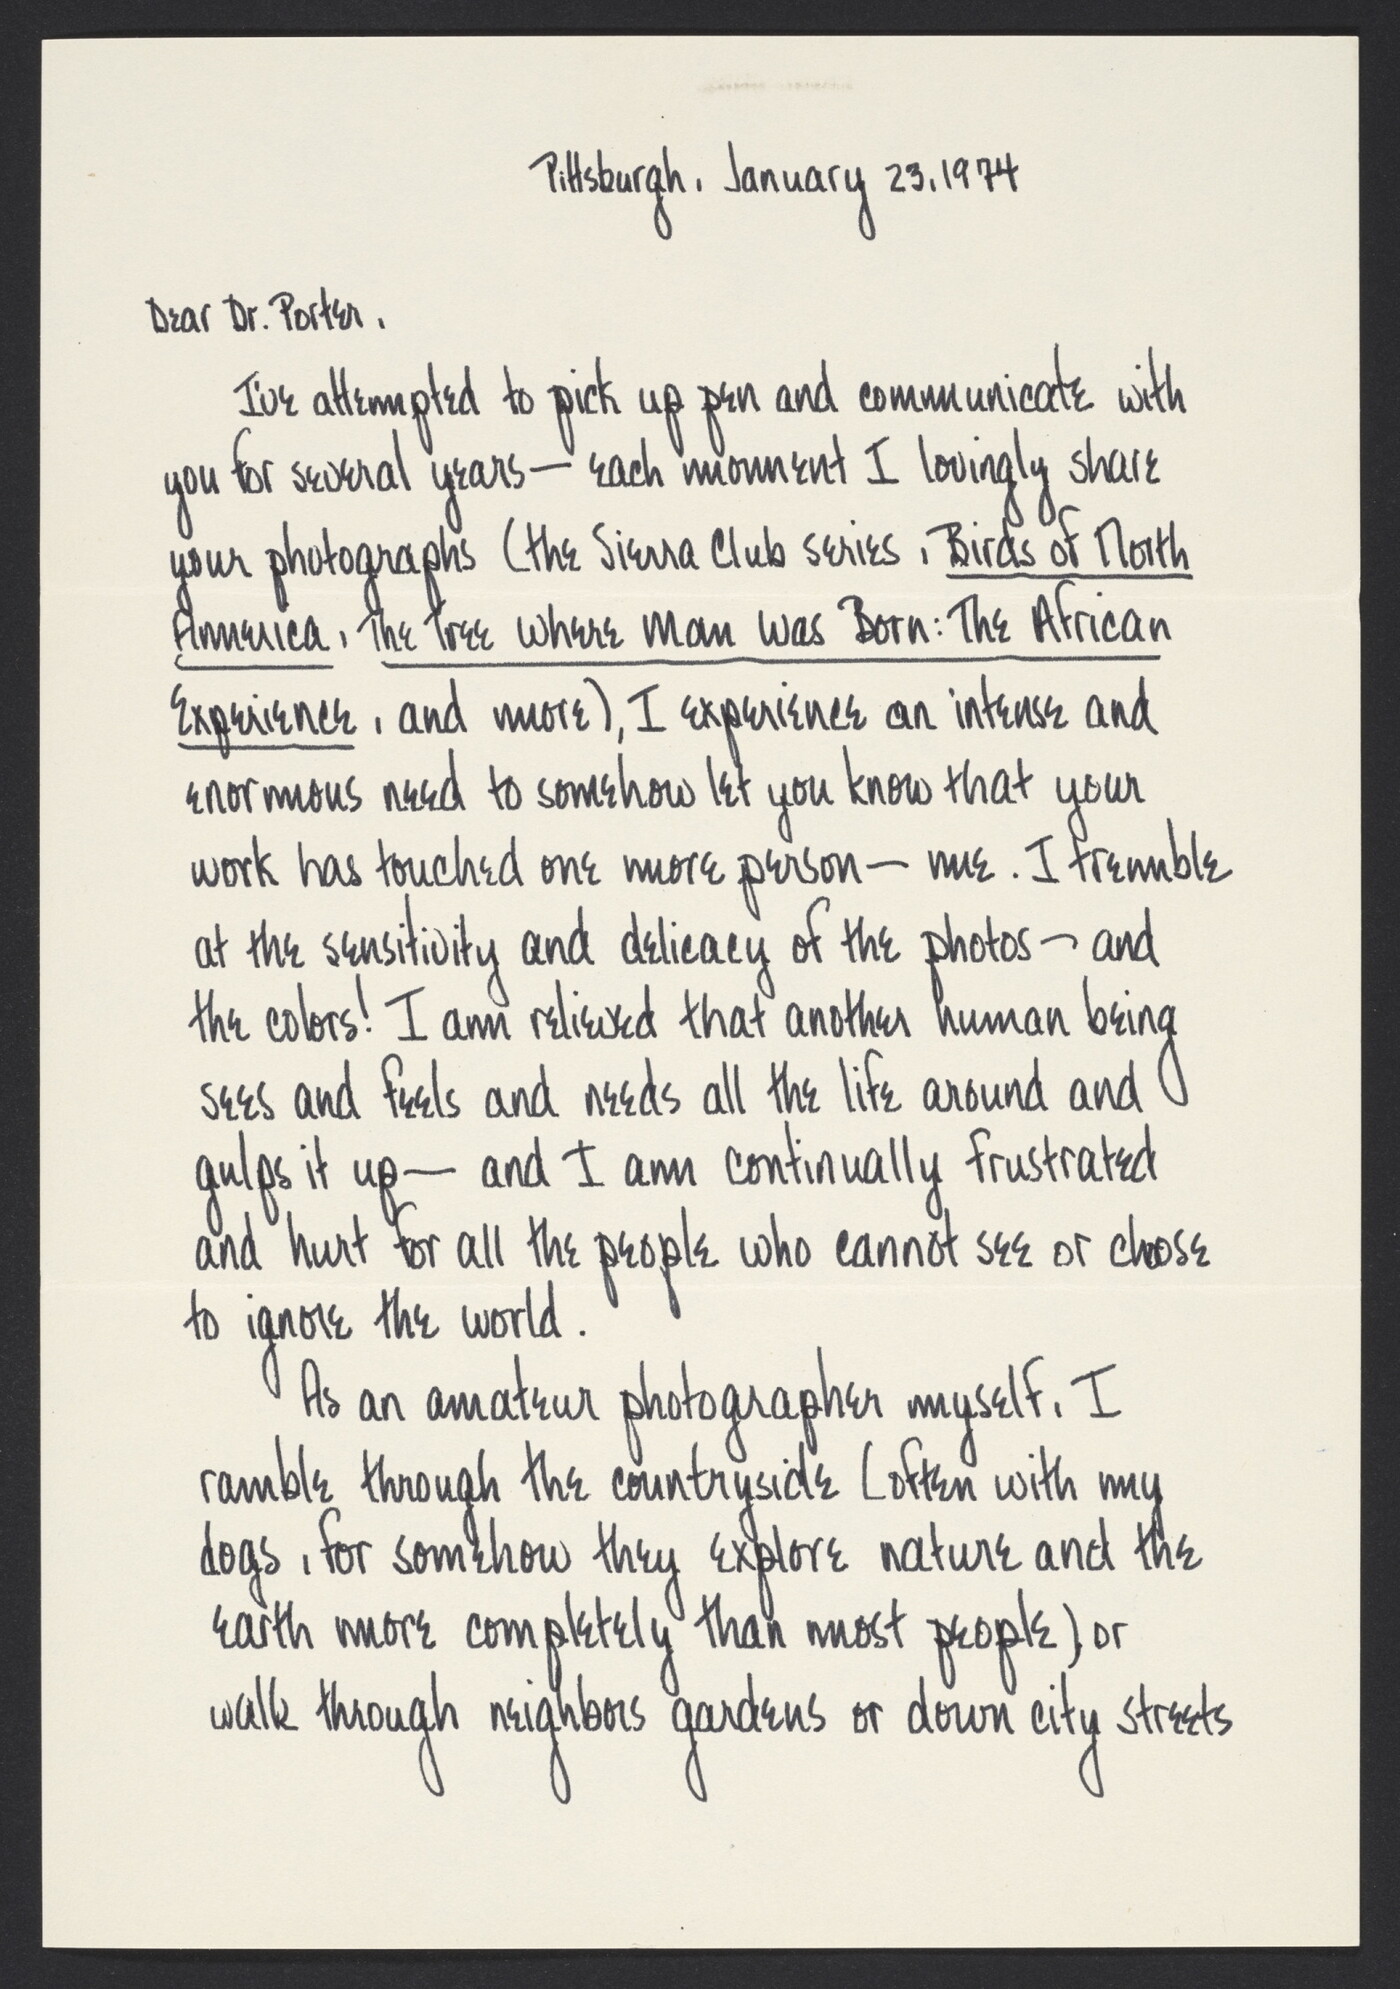 Pittsburgh, January 23, 1974
Dear Dr. Porter,
I've attempted to pick up pen and communicate with
you for several years— each moment I lovingly share
your photographs (the Sierra Club series, Birds of North
America, The Tree Where Man Was Born: The African
Experience, and more), I experience an intense and
enormous need to somehow let you know that your
work has touched one more person— me. I tremble
at the sensitivity and delicacy of the photos— and
the colors! I am relieved that another human being
sees and feels and needs all the life around and
gulps it up— and I am continually frustrated
and hurt for all the people who cannot see or choose
to ignore the world.
As an amateur photographer myself, I
ramble through the countryside (often with my
dogs, for somehow they explore nature and the
earth more completely than most people) or
walk through neighbors gardens or down city streets